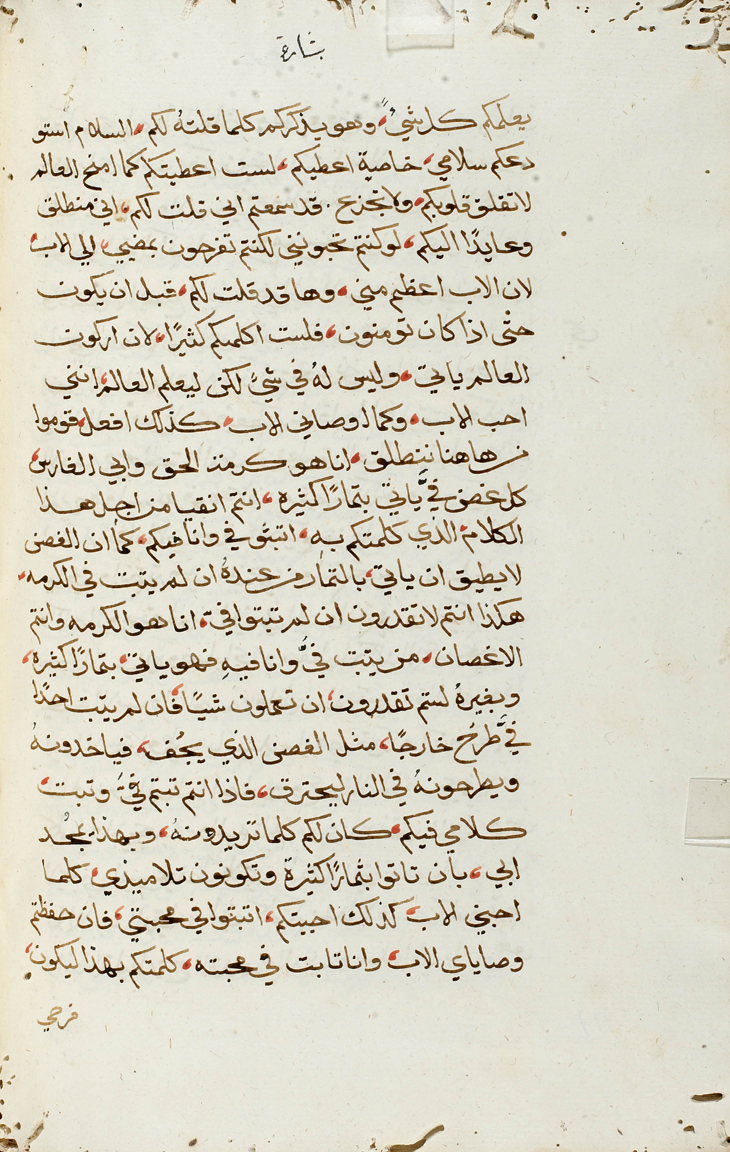 بشارة
يعلمكم كل شيٍ، وهو يذكركم كلما قلتهُ لكم، السلام استو
دعكم سلامي، خاصية اعطيكم، لست اعطيتكم كما امنح العالم
لا تقلق قلوبكم، ولا تجزع. قد سمعتم اني قلت لكم، اني منطلق
وعايدًا اليكم، لوكنتم تحبونني لكنتم تفرحون بمضيي، الي الاب
لان الاب اعظم مني، وها قد قلت لكم، قبل ان يكون
حتْي اذا كان تومنون، فلست اكلمكم كثيرًا، لان اركون
العالم ياتي، وليس لهُ في شيٌ لكن ليعلم العالم، انني
احب الاب، وكما اوصاني الاب، كذلك افعل، قوموا
من هاهنا ننطلق، انا هو كرمة الحق وابي الفارس
كل غصن فيَّ ياتي بتمارًا كثيره، انتم انقيا من اجل هذا
الكلام الذي كلمتكم به، اتبتو في وانا فيكم، كما ان الغصن
لا يطيق ان ياتي، بالتمار من عندهُ ان لم يتبت في الكرمه،
هكذا انتم لا تقدرون ان لم تبتوا فيَّ، انا هو الكرمه وانتم
الاغصان، من يتبت فيَّ وانا فيهِ فهو ياتي، بتمارًا كثيرة،
وبغيرهُ لستم تقدرون، ان تعملون شيًا، فان لم يتبت احدًا
فيَّ طُرحَ خارجًا، مثل الغصن الذي يجُف، فياخدونهُ
ويطرحونهُ في النار ليحترق، فاذا انتم تبتم فيَّ، وتبت
كلامي فيكم، كان لكم كلما تريدونهُ، وبهذا يمجُد
ابي، بان تاتوا بثمارًا كثيرة وتكونون تلاميذي، كلما
احبني الاب، كذلك احببتكم، اتبتوا في محبتي، فان حفظتم
وصاياي الاب، وانا تابت في محبته، كلمتكم بهذا ليكون
فرحي